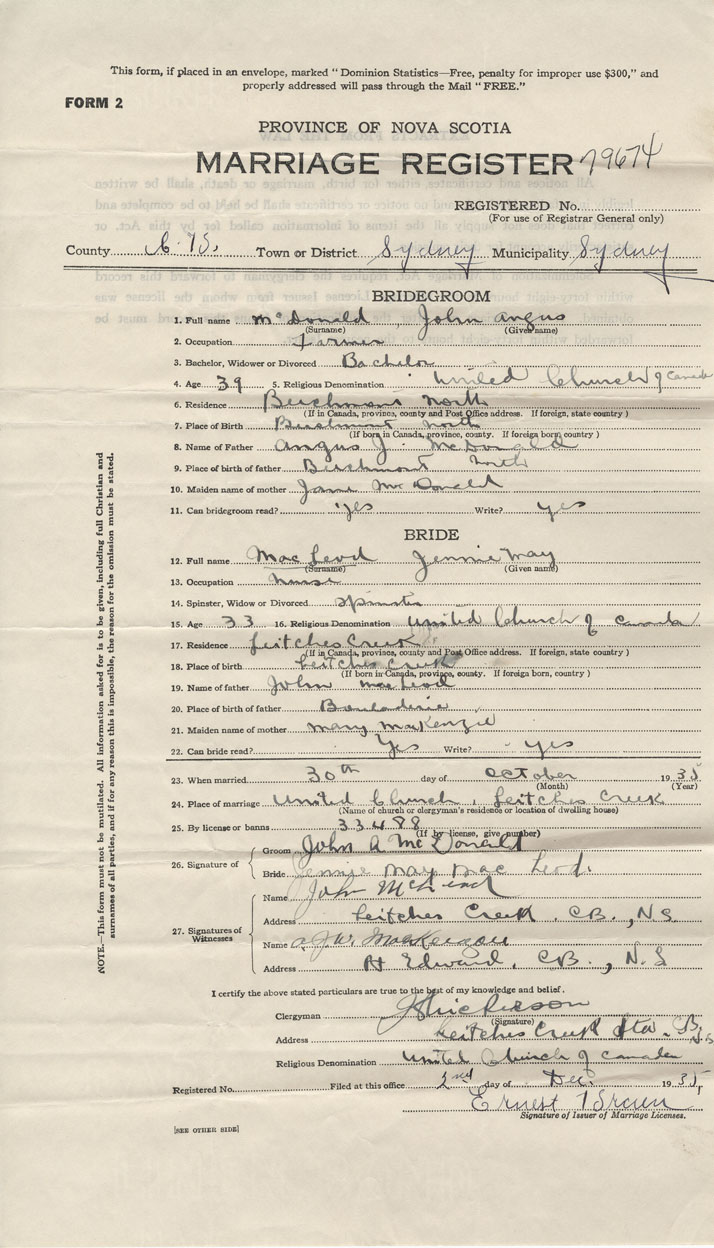 This form, if placed in an envelope, marked "Dominion Statistics—Free, penalty for improper use $300," and
properly addressed will pass through the Mail "FREE."
FORM 2
PROVINCE OF NOVA SCOTIA
MARRIAGE REGISTER 79674
REGISTERED No.
(For use of Registrar General only)
County C. B. Town or District Sydney Municipality Sydney
BRIDEGROOM
1. Full name McDonald John Angus
(Surname) (Given name)
2. Occupation Farmer
3. Bachelor, Widower or Divorced Bachelor
4. Age 39 5. Religious Denomination United Church of Canada
6. Residence Beechmont North
(If in Canada, province, county and Post Office address. If foreign, state country)
7. Place of Birth Beechmont North
(If born in Canada, province, county. If foreign born, country)
8. Name of Father Angus J. McDonald
9. Place of birth of father Beechmont North
10. Maiden name of mother Jane McDonald
11. Can bridegroom read? Yes Write? Yes
BRIDE
12. Full name MacLeod Jennie May
(Surname) (Given name)
13. Occupation Nurse
14. Spinster, Widow or Divorced Spinster
15. Age 33 16. Religious Denomination United Church of Canada
17. Residence Leitches Creek
(If in Canada, province, county and Post Office address. If foreign, state country)
18. Place of birth Leitches Creek
(If born in Canada, province, county. If foreign born, country)
19. Name of father John MacLeod
20. Place of birth of father
21. Maiden name of mother Mary MacKenzie
22. Can bride read? Yes Write? Yes
23. When married 30th day of October 1935
(Month) (Year)
24. Place of marriage United Church, Leitches Creek
(Name of church or clergyman's residence or location of dwelling house)
25. By license or banns 33488
(If by license, give number)
26. Signature of
Groom John A McDonald
Bride Jennie May MacLeod.
27. Signatures of Witnesses
Name John
Address Leitches Creek, C.B., N.S
Name
Address Pt Edward, C.B., N.S
I certify the above stated particulars are true to the best of my knowledge and belief.
Clergyman
(Signature)
Address Leitches Creek Sta. C.B, N.S
Religious Denomination United Church of Canada
Registered No. Filed at this office 2nd day of Dec. 1935
Ernest Brown
Signature of Issuer of Marriage Licenses.
[SEE OTHER SIDE]
NOTE.—This form must not be mutilated. All information asked for is to be given, including full Christian and
surnames of all parties, and if for any reason this is impossible, the reason for the omission must be stated.